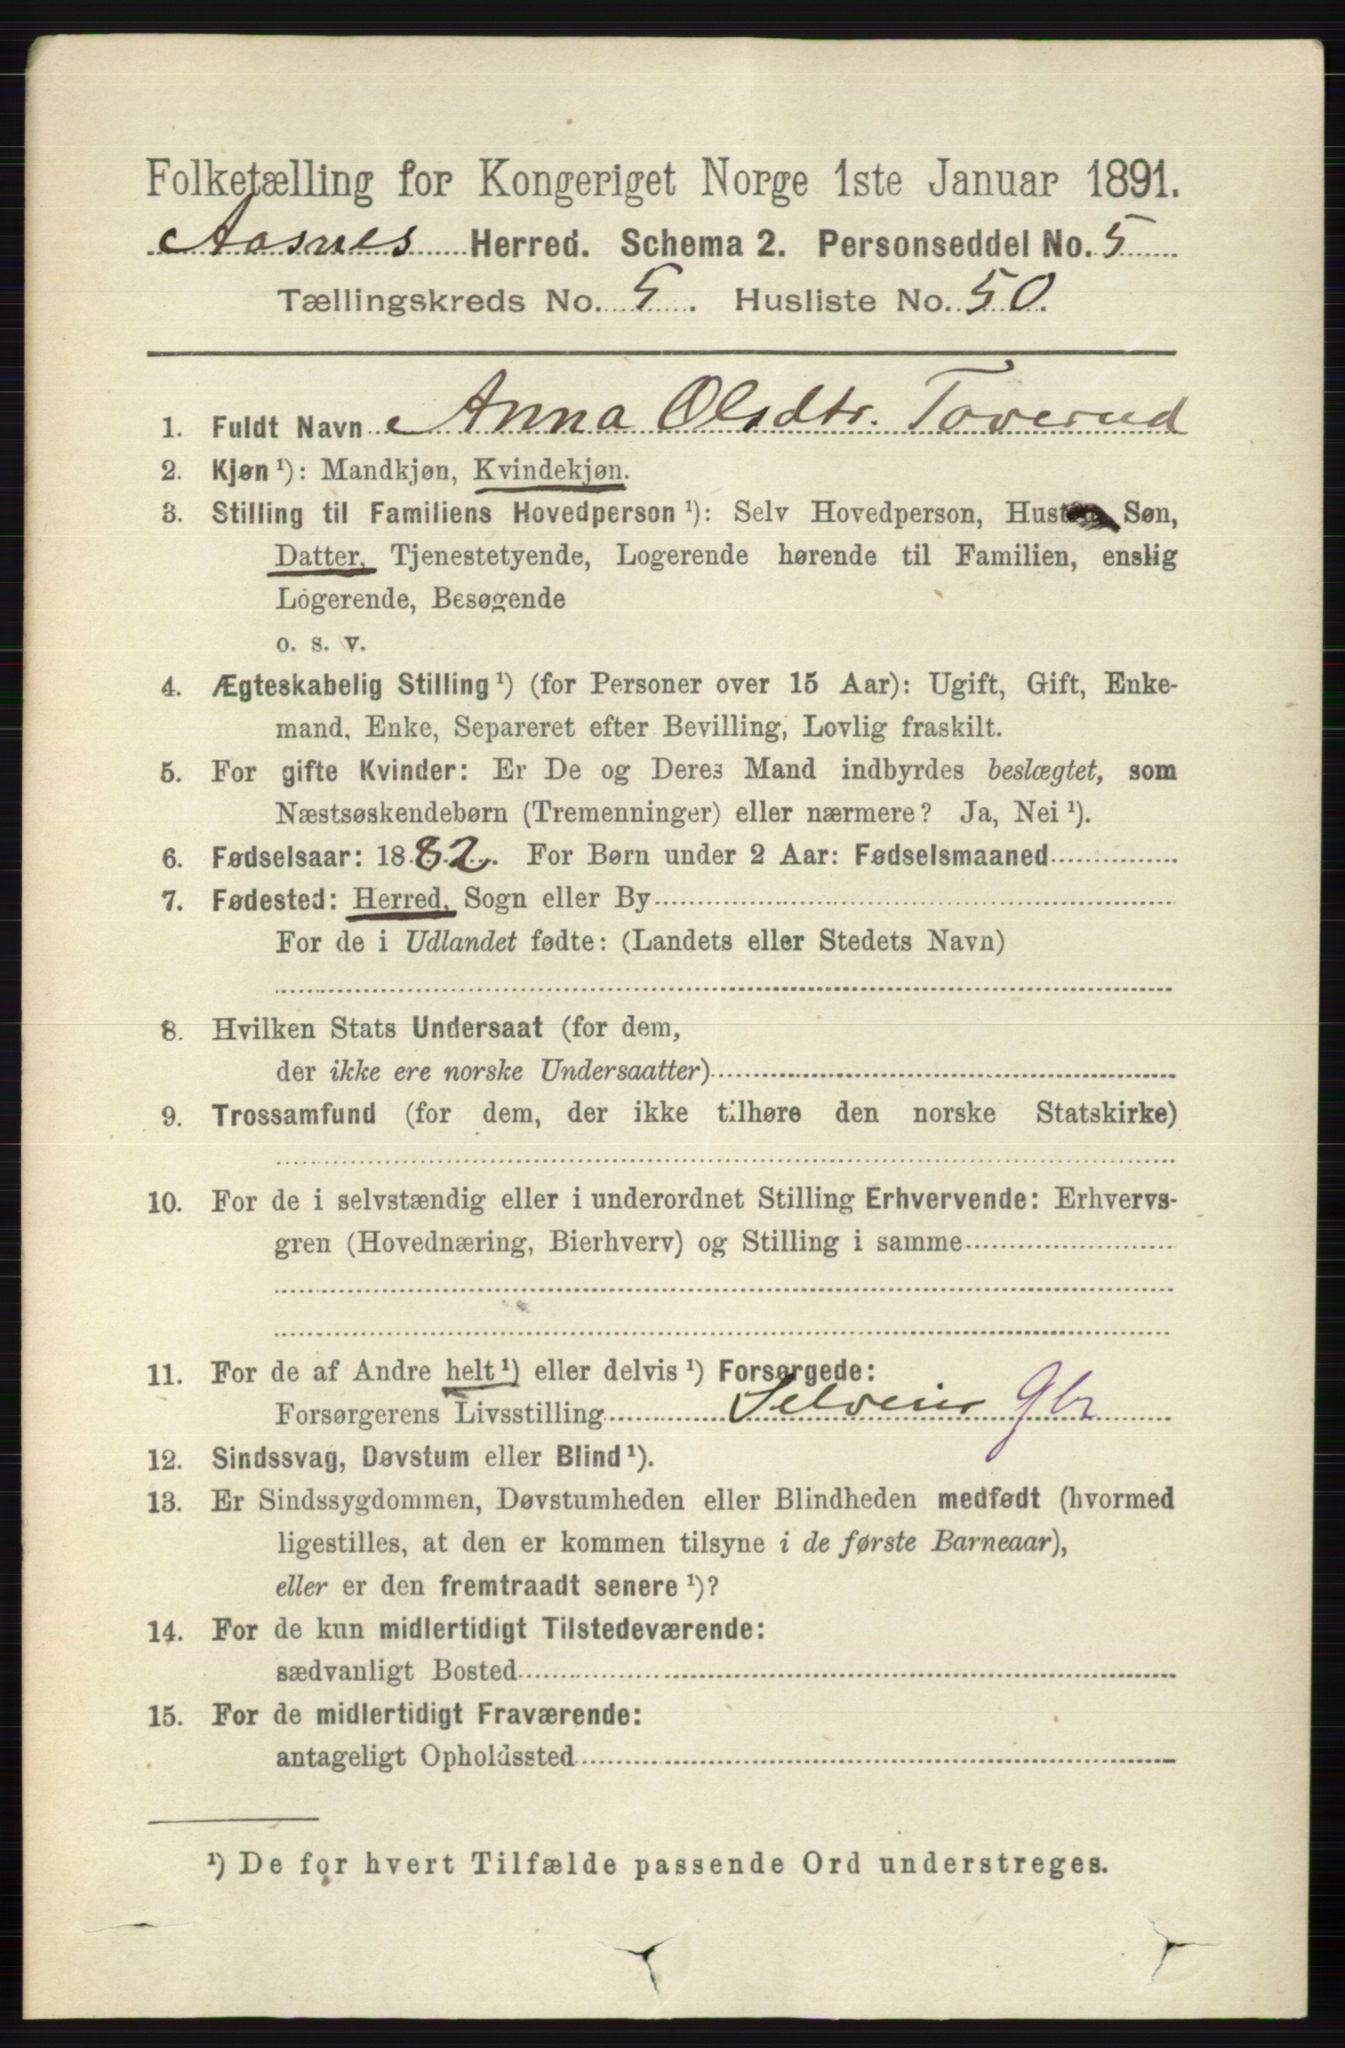 Folketælling for Kongeriget Norge 1ste Januar 1891.
Aasnes Herred. Schema 2. Personseddel No. 5
Tællingskreds No. 5. Husliste No. 50.
1. Fuldt Navn Anna Olsdtr. Toverud
2. Kjøn ¹): Mandkjøn, Kvindekjøn.
3. Stilling til Familiens Hovedperson ¹): Selv Hovedperson, Hustru, Søn,
Datter, Tjenestetyende, Logerende hørende til Familien, enslig
Logerende, Besøgende
o. s. v.
4. Ægteskabelig Stilling ¹) (for Personer over 15 Aar): Ugift, Gift, Enke-
mand, Enke, Separeret efter Bevilling, Lovlig fraskilt.
5. For gifte Kvinder: Er De og Deres Mand indbyrdes beslægtet, som
Næstsøskendebørn (Tremenninger) eller nærmere? Ja, Nei ¹).
6. Fødselsaar: 1882. For Børn under 2 Aar: Fødselsmaaned
7. Fødested: Herred, Sogn eller By
For de i Udlandet fødte: (Landets eller Stedets Navn)
8. Hvilken Stats Undersaat (for dem,
der ikke ere norske Undersaatter)
9. Trossamfund (for dem, der ikke tilhøre den norske Statskirke)
10. For de i selvstændig eller i underordnet Stilling Erhvervende: Erhvervs-
gren (Hovednæring, Bierhverv) og Stilling i samme
11. For de af Andre helt ¹) eller delvis ¹) Forsørgede:
Forsørgerens Livsstilling Selveier Gbr
12. Sindssvag, Døvstum eller Blind ¹).
13. Er Sindssygdommen, Døvstumheden eller Blindheden medfødt (hvormed
ligestilles, at den er kommen tilsyne i de første Barneaar),
eller er den fremtraadt senere ¹)?
14. For de kun midlertidigt Tilstedeværende:
sædvanligt Bosted
15. For de midlertidigt Fraværende:
antageligt Opholdssted
¹) De for hvert Tilfælde passende Ord understreges.